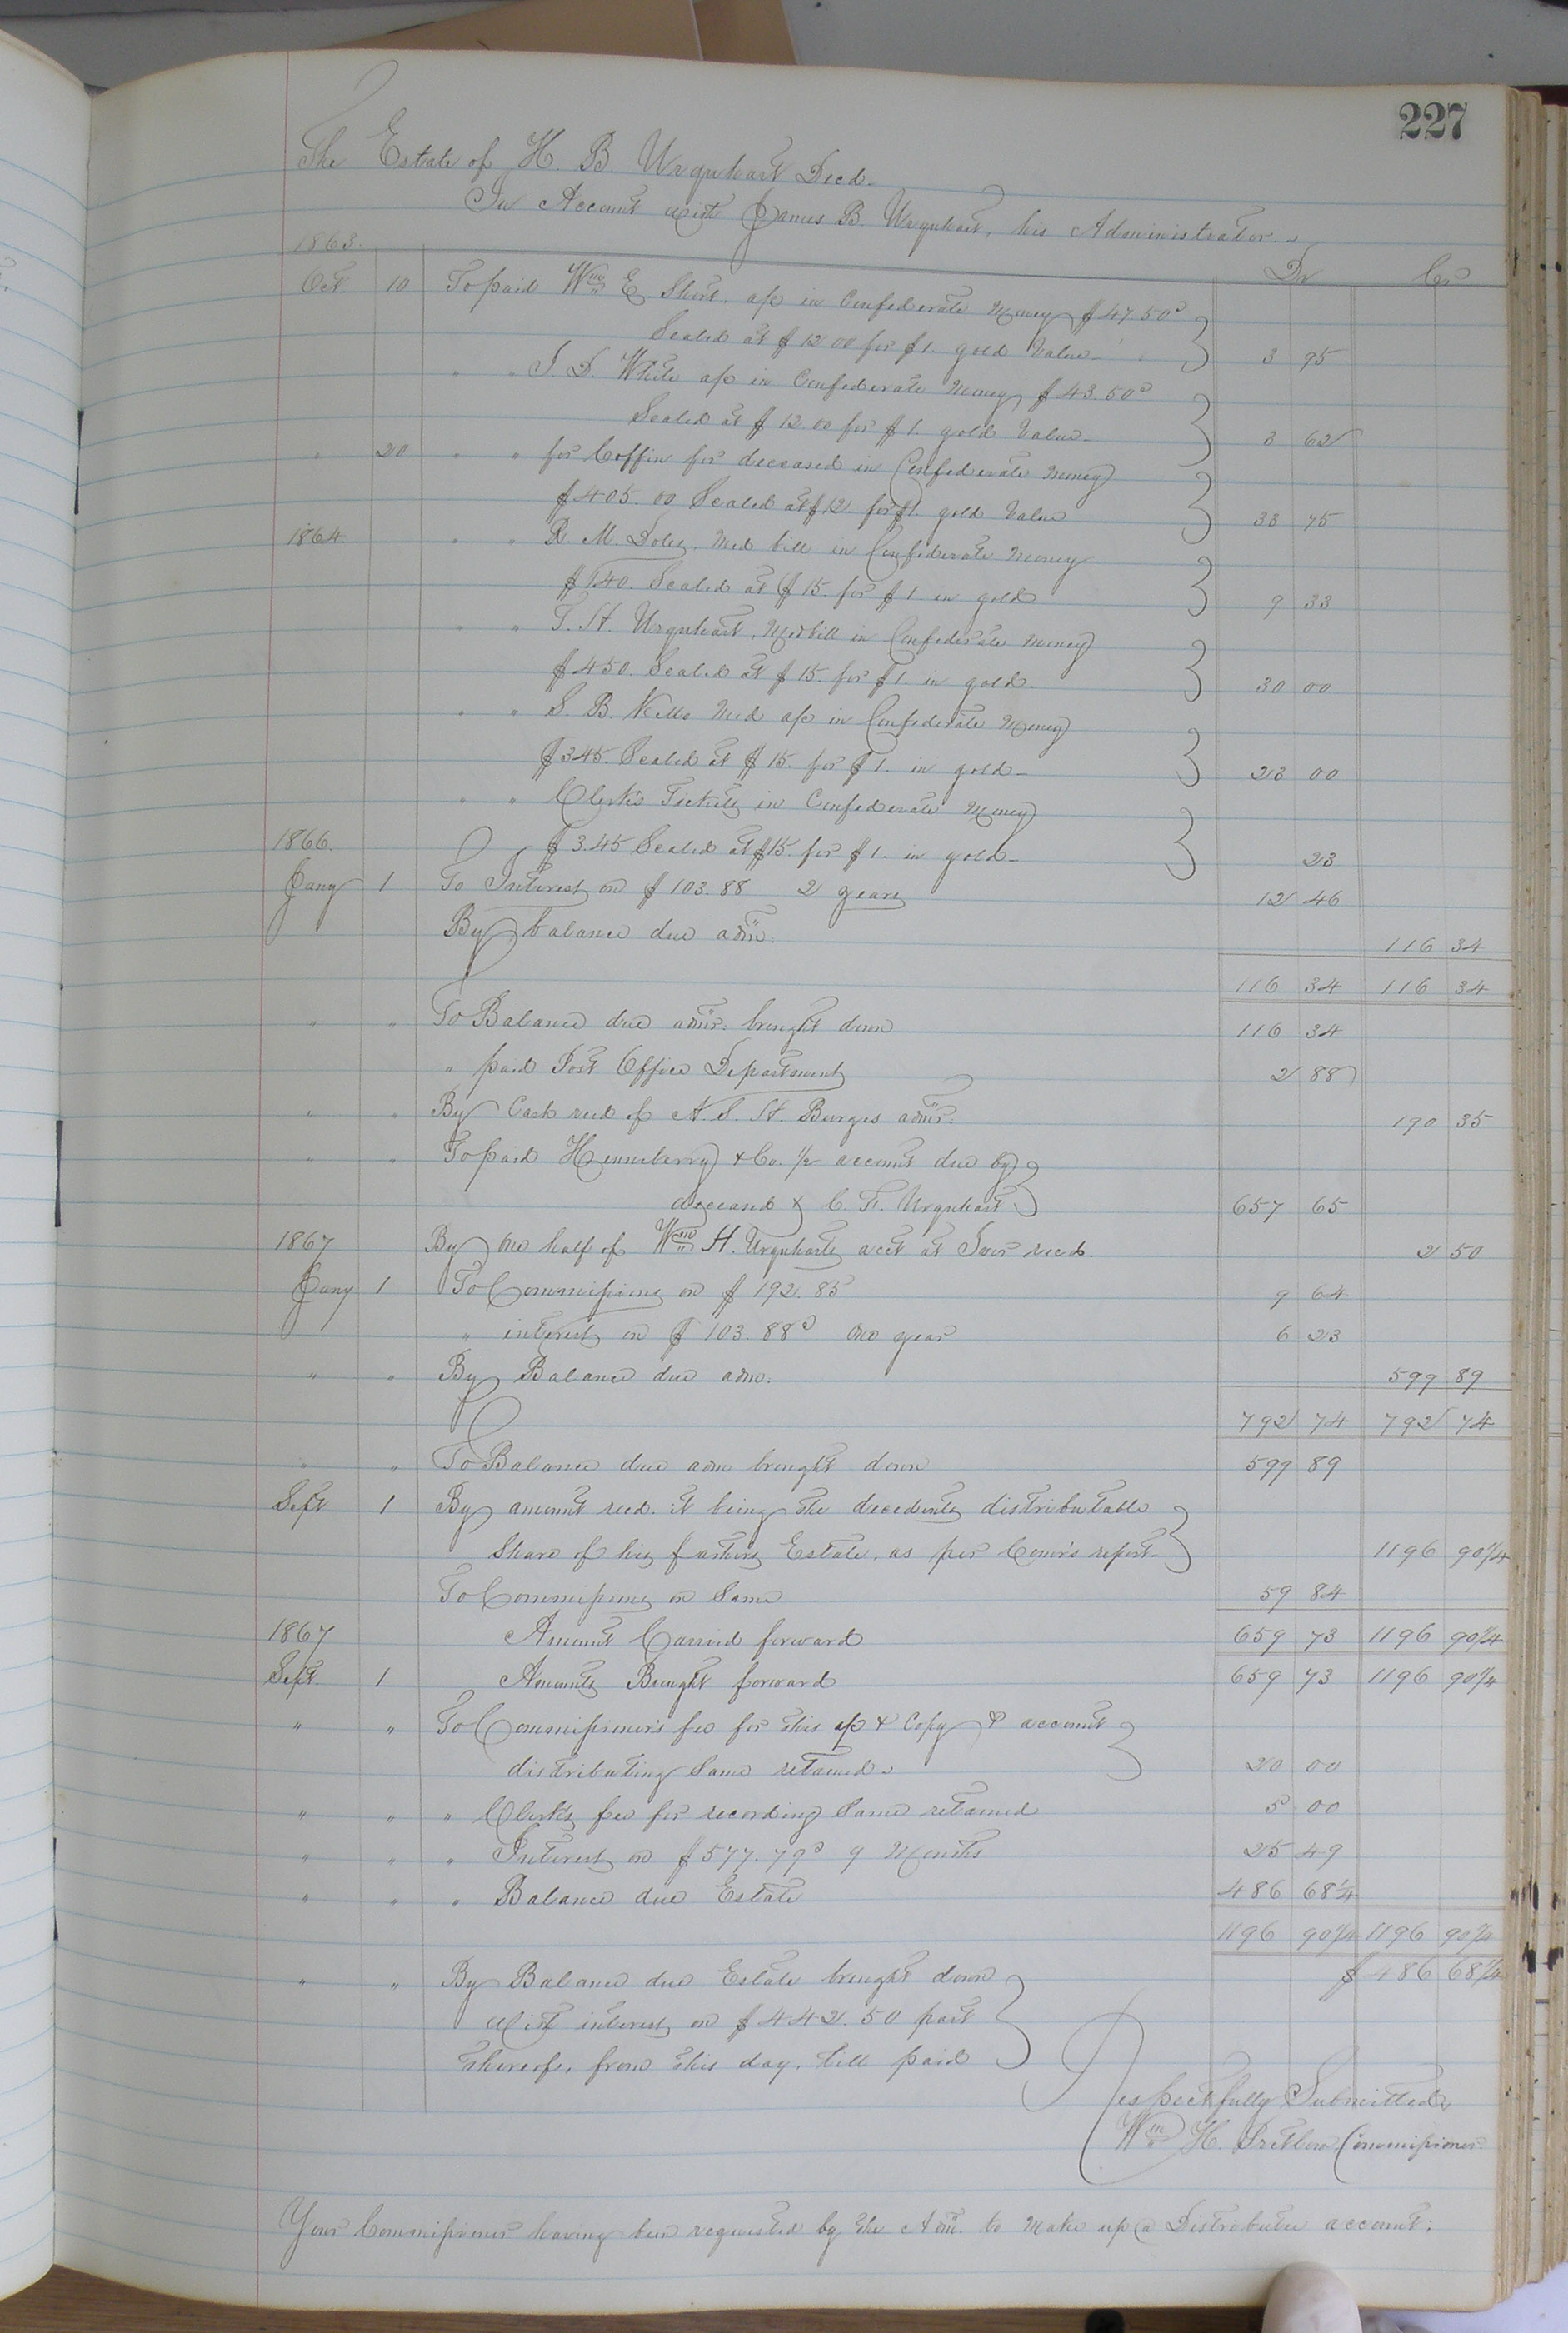 227
The Estate of H. B. Urquhart Decd.
In Account with James B. Urquhart, his Administrator.
1863. Dr Cr
Oct 10 To paid Wm E. Short, a/c in Confederate Money $47.50
Scaled at $12.00 for $1. gold Value 3 95
" " J. D. White a/c in Confederate Money $43.50
Scaled at $12.00 for $1. gold Value 3 62
" 20 " " for Coffin for deceased in Confederate Money
$405.00 Scaled at $12. for $1. gold Value 33 75
1864. " " R. M. Doles, Med bill in Confederate Money
$140. Scaled at $15. for $1. in gold 9 33
" " T. H. Urquhart, Med bill in Confederate Money
$450. Scaled at $15. for $1. in gold. 30 00
" " S. B. Kello Med a/c in Confederate Money
$345. Scaled at $15. for $1. in gold 23 00
" " Clerk's Tickets in Confederate Money
1866. $3.45 Scaled at $15. for $1. in gold 23
Jany 1 To Interest on $103.88 2 years 12 46
By balance due adm. 116 34
116 34 116 34
" " To Balance due admr. brought down 116 34
" paid Post Office Department 2 88
" " By Cash recd of A. S. H. Burges admr. 190 35
" " To paid Henneberry & Co. 1/2 account due by
deceased & C. F. Urquhart 657 65
1867 By one half of Wm H. Urquharts acct at recd. 2 50
Jany 1 To Commissions on $192.85 9 64
" interest on $103.88 one year 6 23
" " By Balance due adm. 599 89
792 74 792 74
" " To Balance due adm brought down 599 89
Sept 1 By amount recd. it being the decedents distributable
Share of his fathers Estate, as per Comr's report. 1196 90 1/4
To Commissions on Same 59 84
1867 Amount Carried forward 659 73 1196 90 1/4
Sept. 1 Amounts Brought forward 659 73 1196 90 1/4
" " To Commissioner's fee for this a/c & Copy & account
distributing Same retained. 20 00
" " " Clerk's fee for recording Same retained 5 00
" " " Interest on $577.79 9 Months 25 49
" " " Balance due Estate 486 68 1/4
1196 90 1/4 1196 90 1/4
" " By Balance due Estate brought down $ 486 68 1/4
With interest on $442.50 part
thereof, from this day, till paid
Respectfully Submitted
Wm H. Pretlow Commissioner
Your Commissioner having been requested by the Adm. to make up a Distributee account: